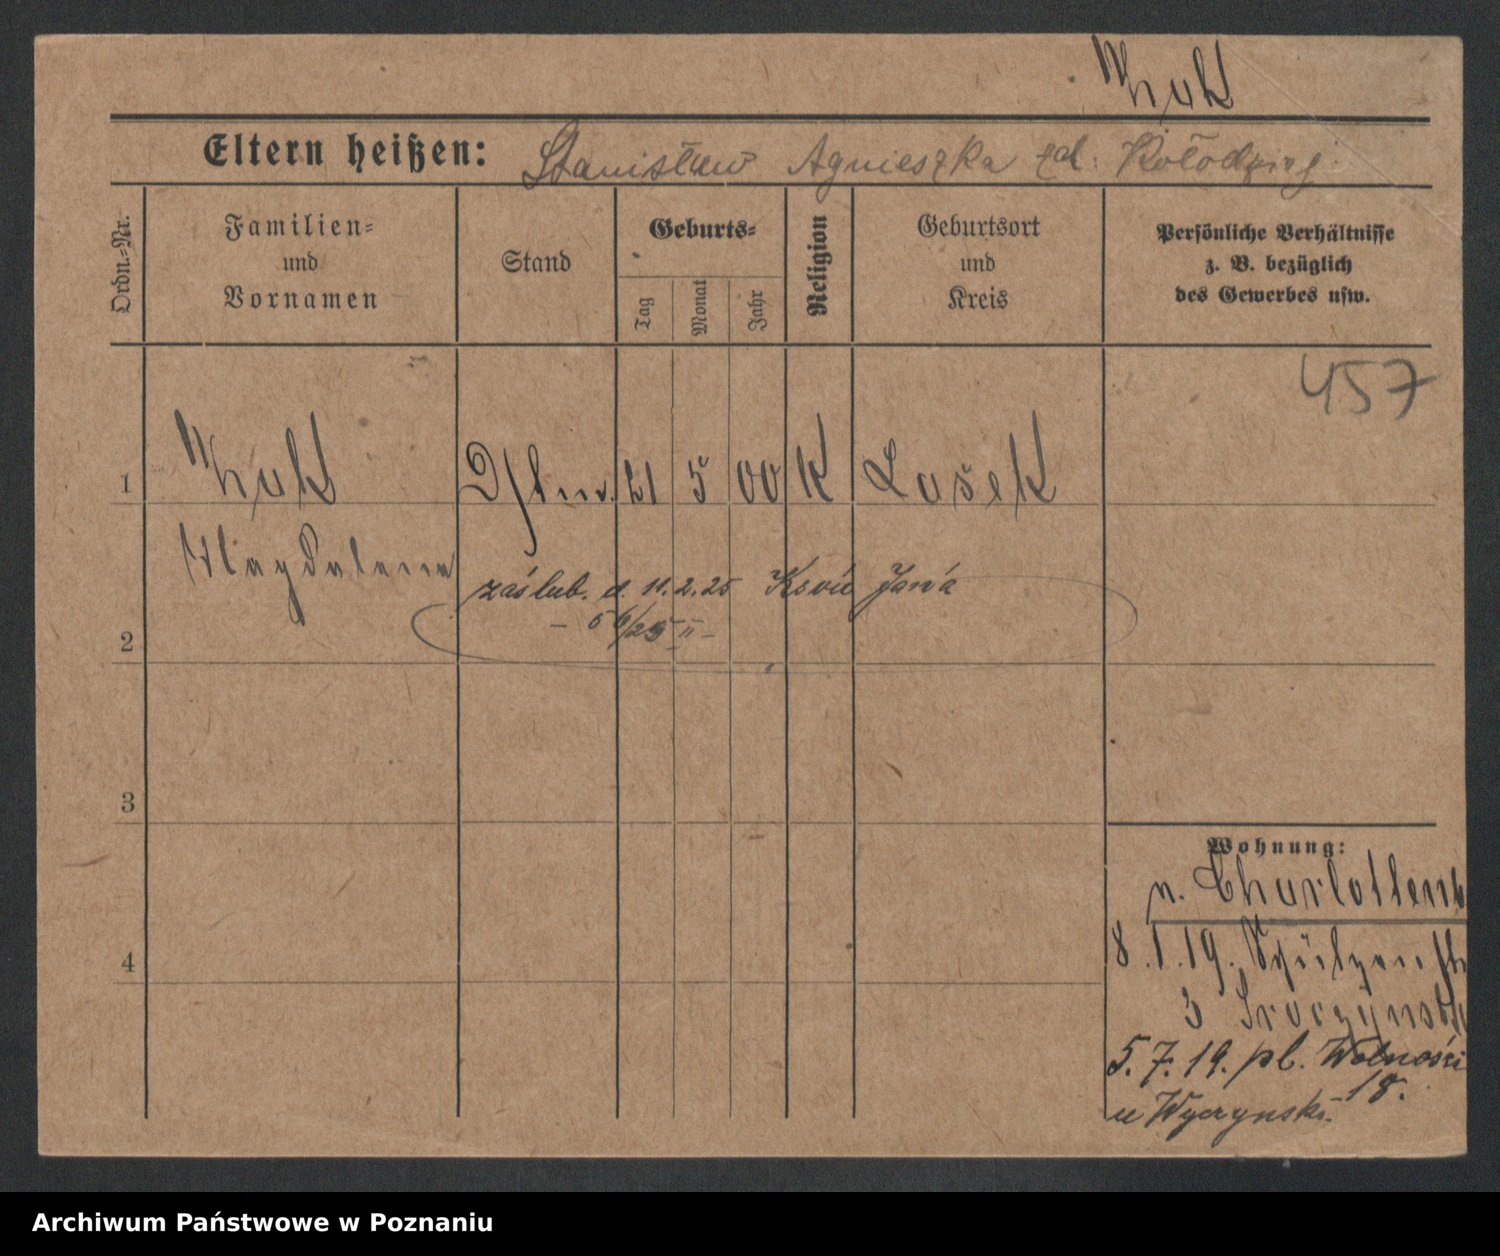 Eltern heißen: Stanisław Agnieszka zd. Kołodziej
Ordn.-Nr.
Familien-
und
Vornamen
Stand
Geburts-
Tag
Monat
Jahr
Religion
Geburtsort
und
Kreis
Persönliche Verhältnisse
z. B. bezüglich
des Gewerbes usw.
457
1 21 5 00 K
Magdalena
zaślub. d. 11.2.25 Jana
2
3
4
Wohnung:
n. Charlottenb
8.1.19. Schützenstr
3
5.7.19. pl. Wolności
18.
u Wyczynski.
Archiwum Państwowe w Poznaniu